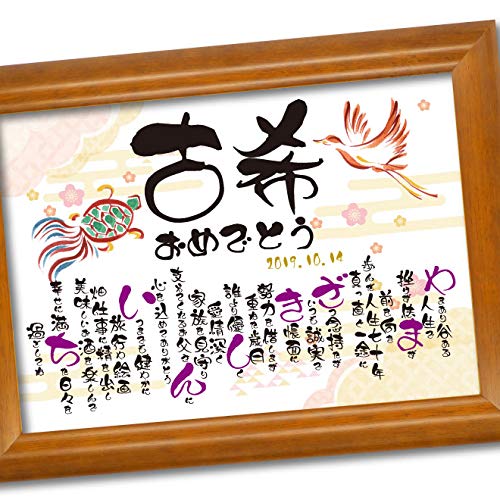 古希
おめでとう
2019.10.14
やまあり谷ある
人生を
挫けず休まず
前を向き
歩んだ人生七十年
真っ直ぐ一途に
ざつ念持たず
いつも誠実で
き帳面
努力を惜しまず
重ねた歳月
誰より優しく
愛情深く
家族を見守り
支えてくれる父さんに
心を込めてありがとう
いつまでも健やかに
旅行や絵画
畑仕事に精を出し
美味しいお酒を楽しんで
幸せに満ちた日々を
過ごしてね